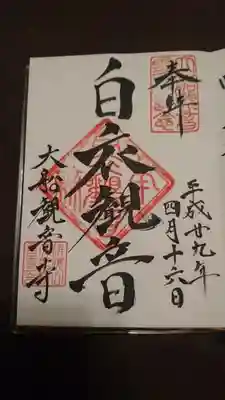 奉拝
平成廿九年
四月十六日
白衣観音
大船観音寺